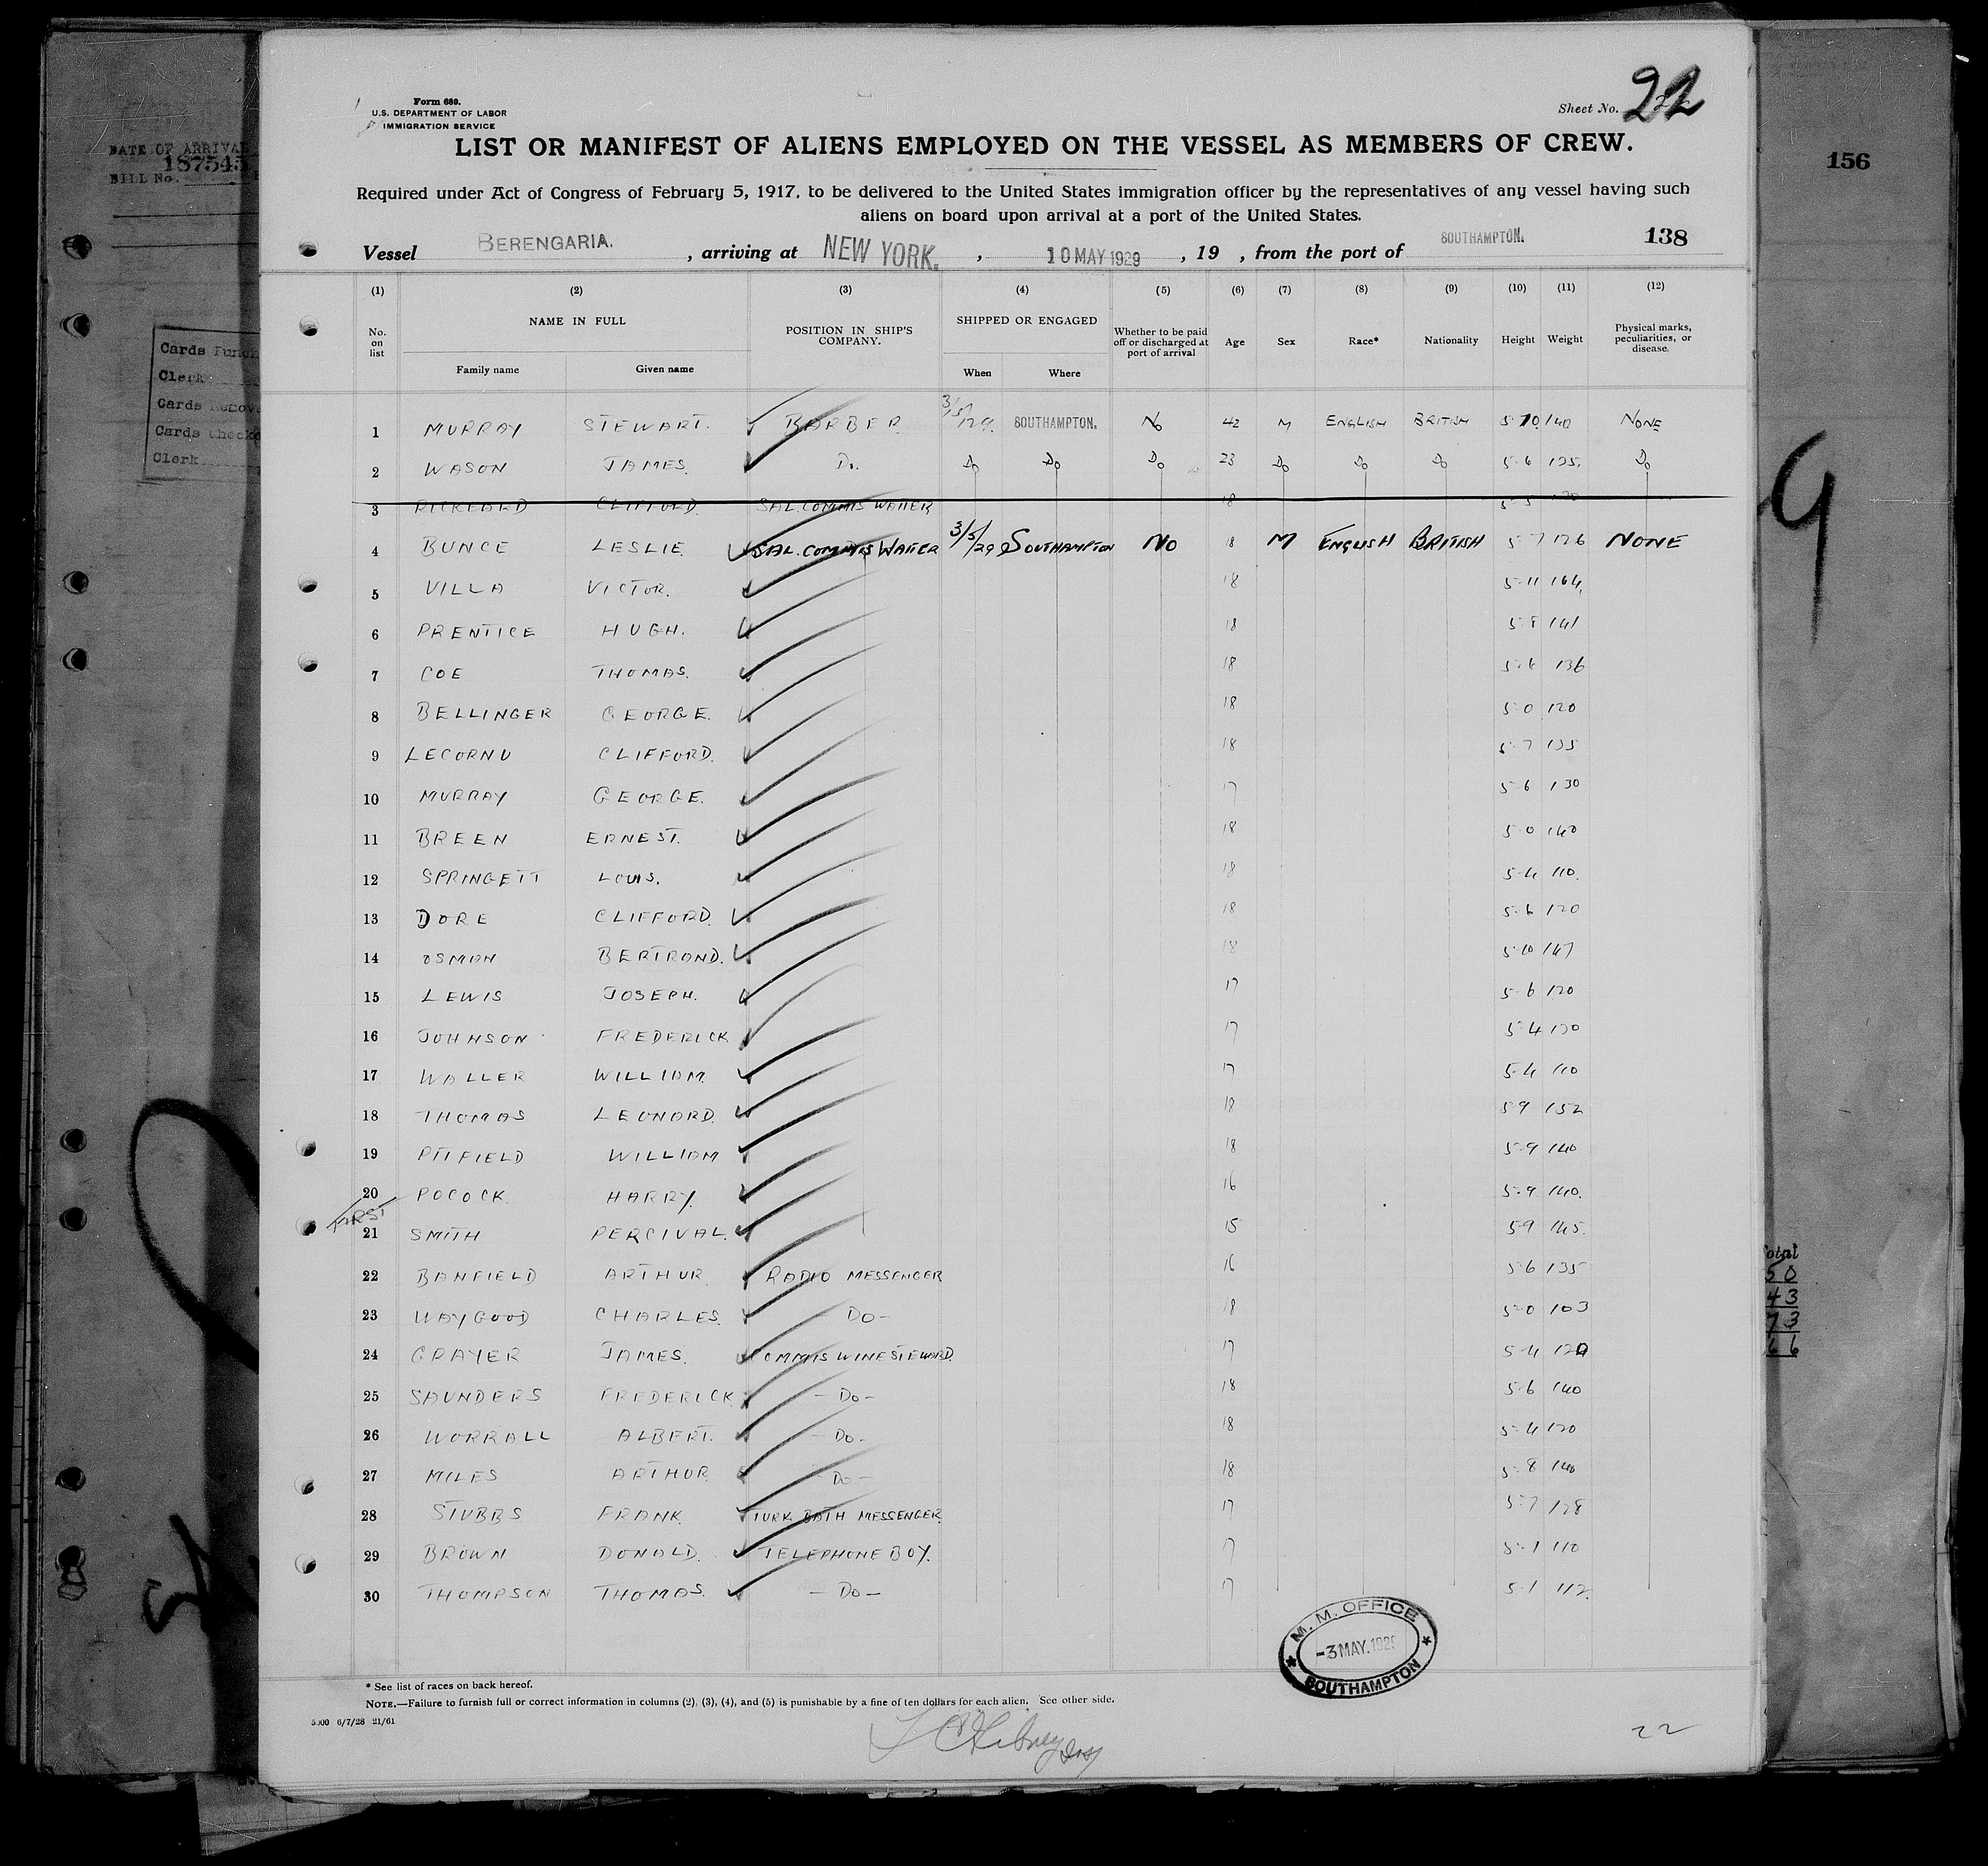 Form 680.
U.S. DEPARTMENT OF LABOR
IMMIGRATION SERVICE
Sheet No. 22
LIST OR MANIFEST OF ALIENS EMPLOYED ON THE VESSEL AS MEMBERS OF CREW.
Required under Act of Congress of February 5, 1917, to be delivered to the United States immigration officer by the representatives of any vessel having such
aliens on board upon arrival at a port of the United States.
138
Vessel BERENGARIA. , arriving at NEW YORK. , 10 MAY 1929 , 19 , from the port of SOUTHAMPTON.
(1) (2) (3) (4) (5) (6) (7) (8) (9) (10) (11) (12)
No. on list NAME IN FULL POSITION IN SHIP'S COMPANY. SHIPPED OR ENGAGED Whether to be paid off or discharged at port of arrival Age Sex Race* Nationality Height Weight Physical marks, peculiarities, or disease.
Family name Given name When Where
1 MURRAY STEWART. BARBER 3/5/29. SOUTHAMPTON. No 42 M ENGLISH BRITISH 5 10 140 NONE
2 WASON JAMES. Do. Do Do Do 23 Do Do Do 5-6 125. Do
3 RICKEARD CLIFFORD. SAL. COMMIS WAITER 18 5-5
4 BUNCE LESLIE. SAL. COMMIS WAITER 3/5/29 SOUTHAMPTON NO 18 M ENGLISH BRITISH 5-7 126 NONE
5 VILLA VICTOR. 18 5-11 164
6 PRENTICE HUGH. 18 5-8 141
7 COE THOMAS. 18 5-6 136
8 BELLINGER GEORGE. 18 5-0 120
9 LECORNU CLIFFORD. 18 5-7 135
10 MURRAY GEORGE. 17 5-6 130
11 BREEN ERNEST. 18 5-0 140
12 SPRINGETT LOUIS. 18 5-4 110.
13 DORE CLIFFORD. 18 5-6 120
14 OSMAN BERTRAND. 18 5-10 147
15 LEWIS JOSEPH. 17 5-6 120
16 JOHNSON FREDERICK 17 5-4 120
17 WALLER WILLIAM. 17 5-4 110
18 THOMAS LEONARD. 18 5 9 152
19 PITFIELD WILLIAM 18 5-9 140
20 POCOCK HARRY. 16 5-9 140.
FIRST
21 SMITH PERCIVAL. 15 5 9 145.
22 BANFIELD ARTHUR. RADIO MESSENGER 16 5-6 135
23 WAYGOOD CHARLES. DO- 18 5-0 103
24 GRAYER JAMES. COMMIS WINE STEWARD. 17 5-4 120
25 SAUNDERS FREDERICK. - Do - 18 5-6 140
26 WORRALL ALBERT. Do. 18 5-4 120
27 MILES ARTHUR. Do - 18 5-8 140
28 STUBBS FRANK. TURK BATH MESSENGER. 17 5-7 128
29 BROWN DONALD. TELEPHONE BOY. 17 5-1 110
30 THOMPSON THOMAS. - Do - 17 5-1 112.
M. M. OFFICE
-3 MAY. 1929
SOUTHAMPTON
* See list of races on back hereof.
NOTE.—Failure to furnish full or correct information in columns (2), (3), (4), and (5) is punishable by a fine of ten dollars for each alien. See other side.
5000 6/7/28 21/61
22
DATE OF ARRIVAL
187545
BILL No.
Cards Punch
Clerk
Cards Remov
Cards Checke
Clerk
156
9
Total
50
43
73
66